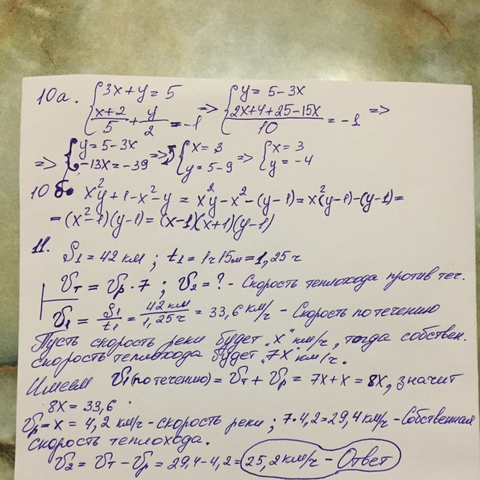 10а. { 3x + y = 5 => { y = 5 - 3x
(x+2)/5 + y/2 = -1 (2x+4+25-15x)/10 = -1 =>
=> { y = 5-3x => { x = 3 => { x = 3
-13x = -39 y = 5-9 y = -4
10б. x²y + 1 - x² - y = x²y - x² - (y-1) = x²(y-1) - (y-1) =
= (x²-1)(y-1) = (x-1)(x+1)(y-1)
11. S₁ = 42 км ; t₁ = 1ч 15м = 1,25 ч
Vт = Vр · 7 ; V₂ = ? - Скорость теплохода против теч.
V₁ = S₁/t₁ = 42 км/1,25 ч = 33,6 км/ч - Скорость по течению
Пусть скорость реки будет "x" км/ч, тогда собствен.
скорость теплохода будет "7x" км/ч.
Имеем V₁ (по течению) = Vт + Vр = 7x + x = 8x, значит
8x = 33,6
Vр = x = 4,2 км/ч - скорость реки ; 7·4,2 = 29,4 км/ч - Собственная
скорость теплохода.
V₂ = Vт - Vр = 29,4 - 4,2 = 25,2 км/ч - Ответ